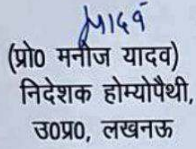 यादव
(प्रो० मनोज यादव)
निदेशक होम्योपैथी,
उ०प्र०, लखनऊ